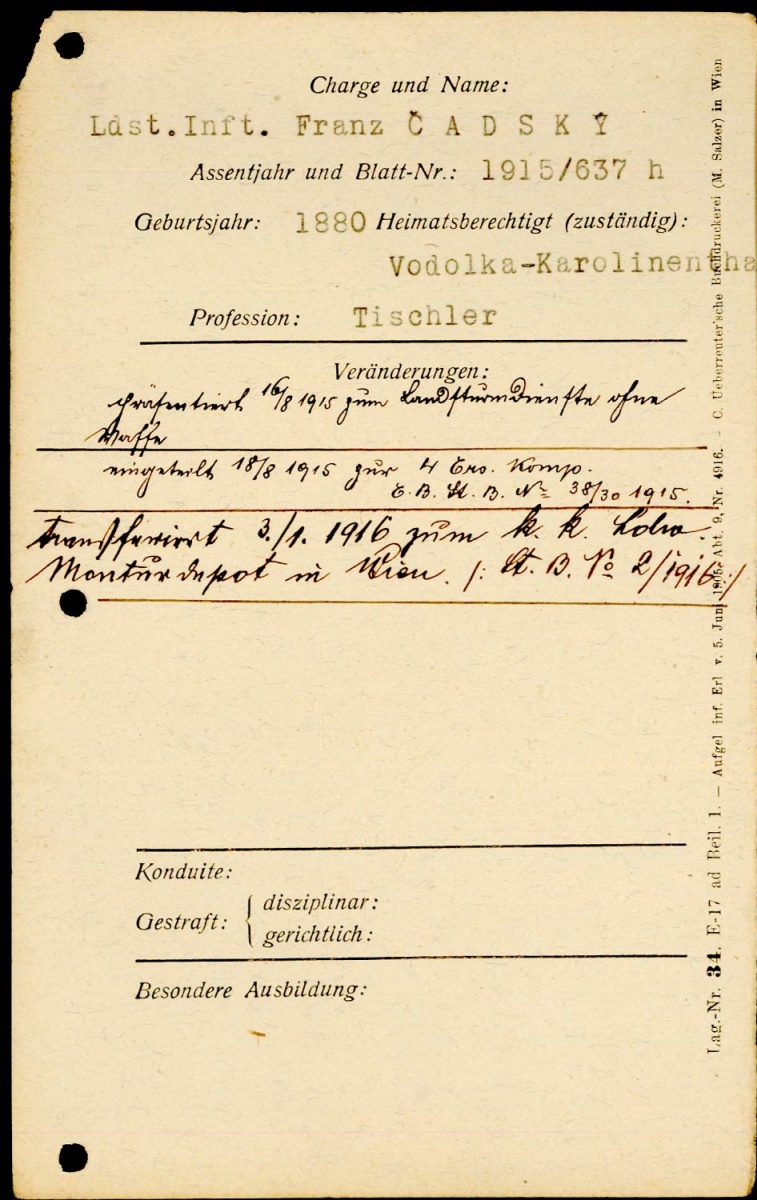 Charge und Name:
Ldst.Inft. Franz Č A D S K Ý
Assentjahr und Blatt-Nr.: 1915/637 h
Geburtsjahr: 1880 Heimatsberechtigt (zuständig):
Vodolka-Karolinentha
Profession: Tischler
Veränderungen:
präsentiert 16/8 1915 zum Landsturmdienste ohne
Waffe
eingeteilt 18/8 1915 zur 4 Ers. Komp.
E. B. St. B. Nº 38/30 1915.
transferiert 3./1. 1916 zum k. k. Ldw
Monturdepot in Wien. /: St. B. Nº 2/1916 :/
Konduite:
Gestraft: { disziplinar:
gerichtlich:
Besondere Ausbildung:
Lag.-Nr. 34. E-17 ad Beil. 1. — Aufgel. inf. Erl v. 5. Juni Abt. 9, Nr. 4916. - C. Ueberreuter'sche Buchdruckerei (M. Salzer) in Wien